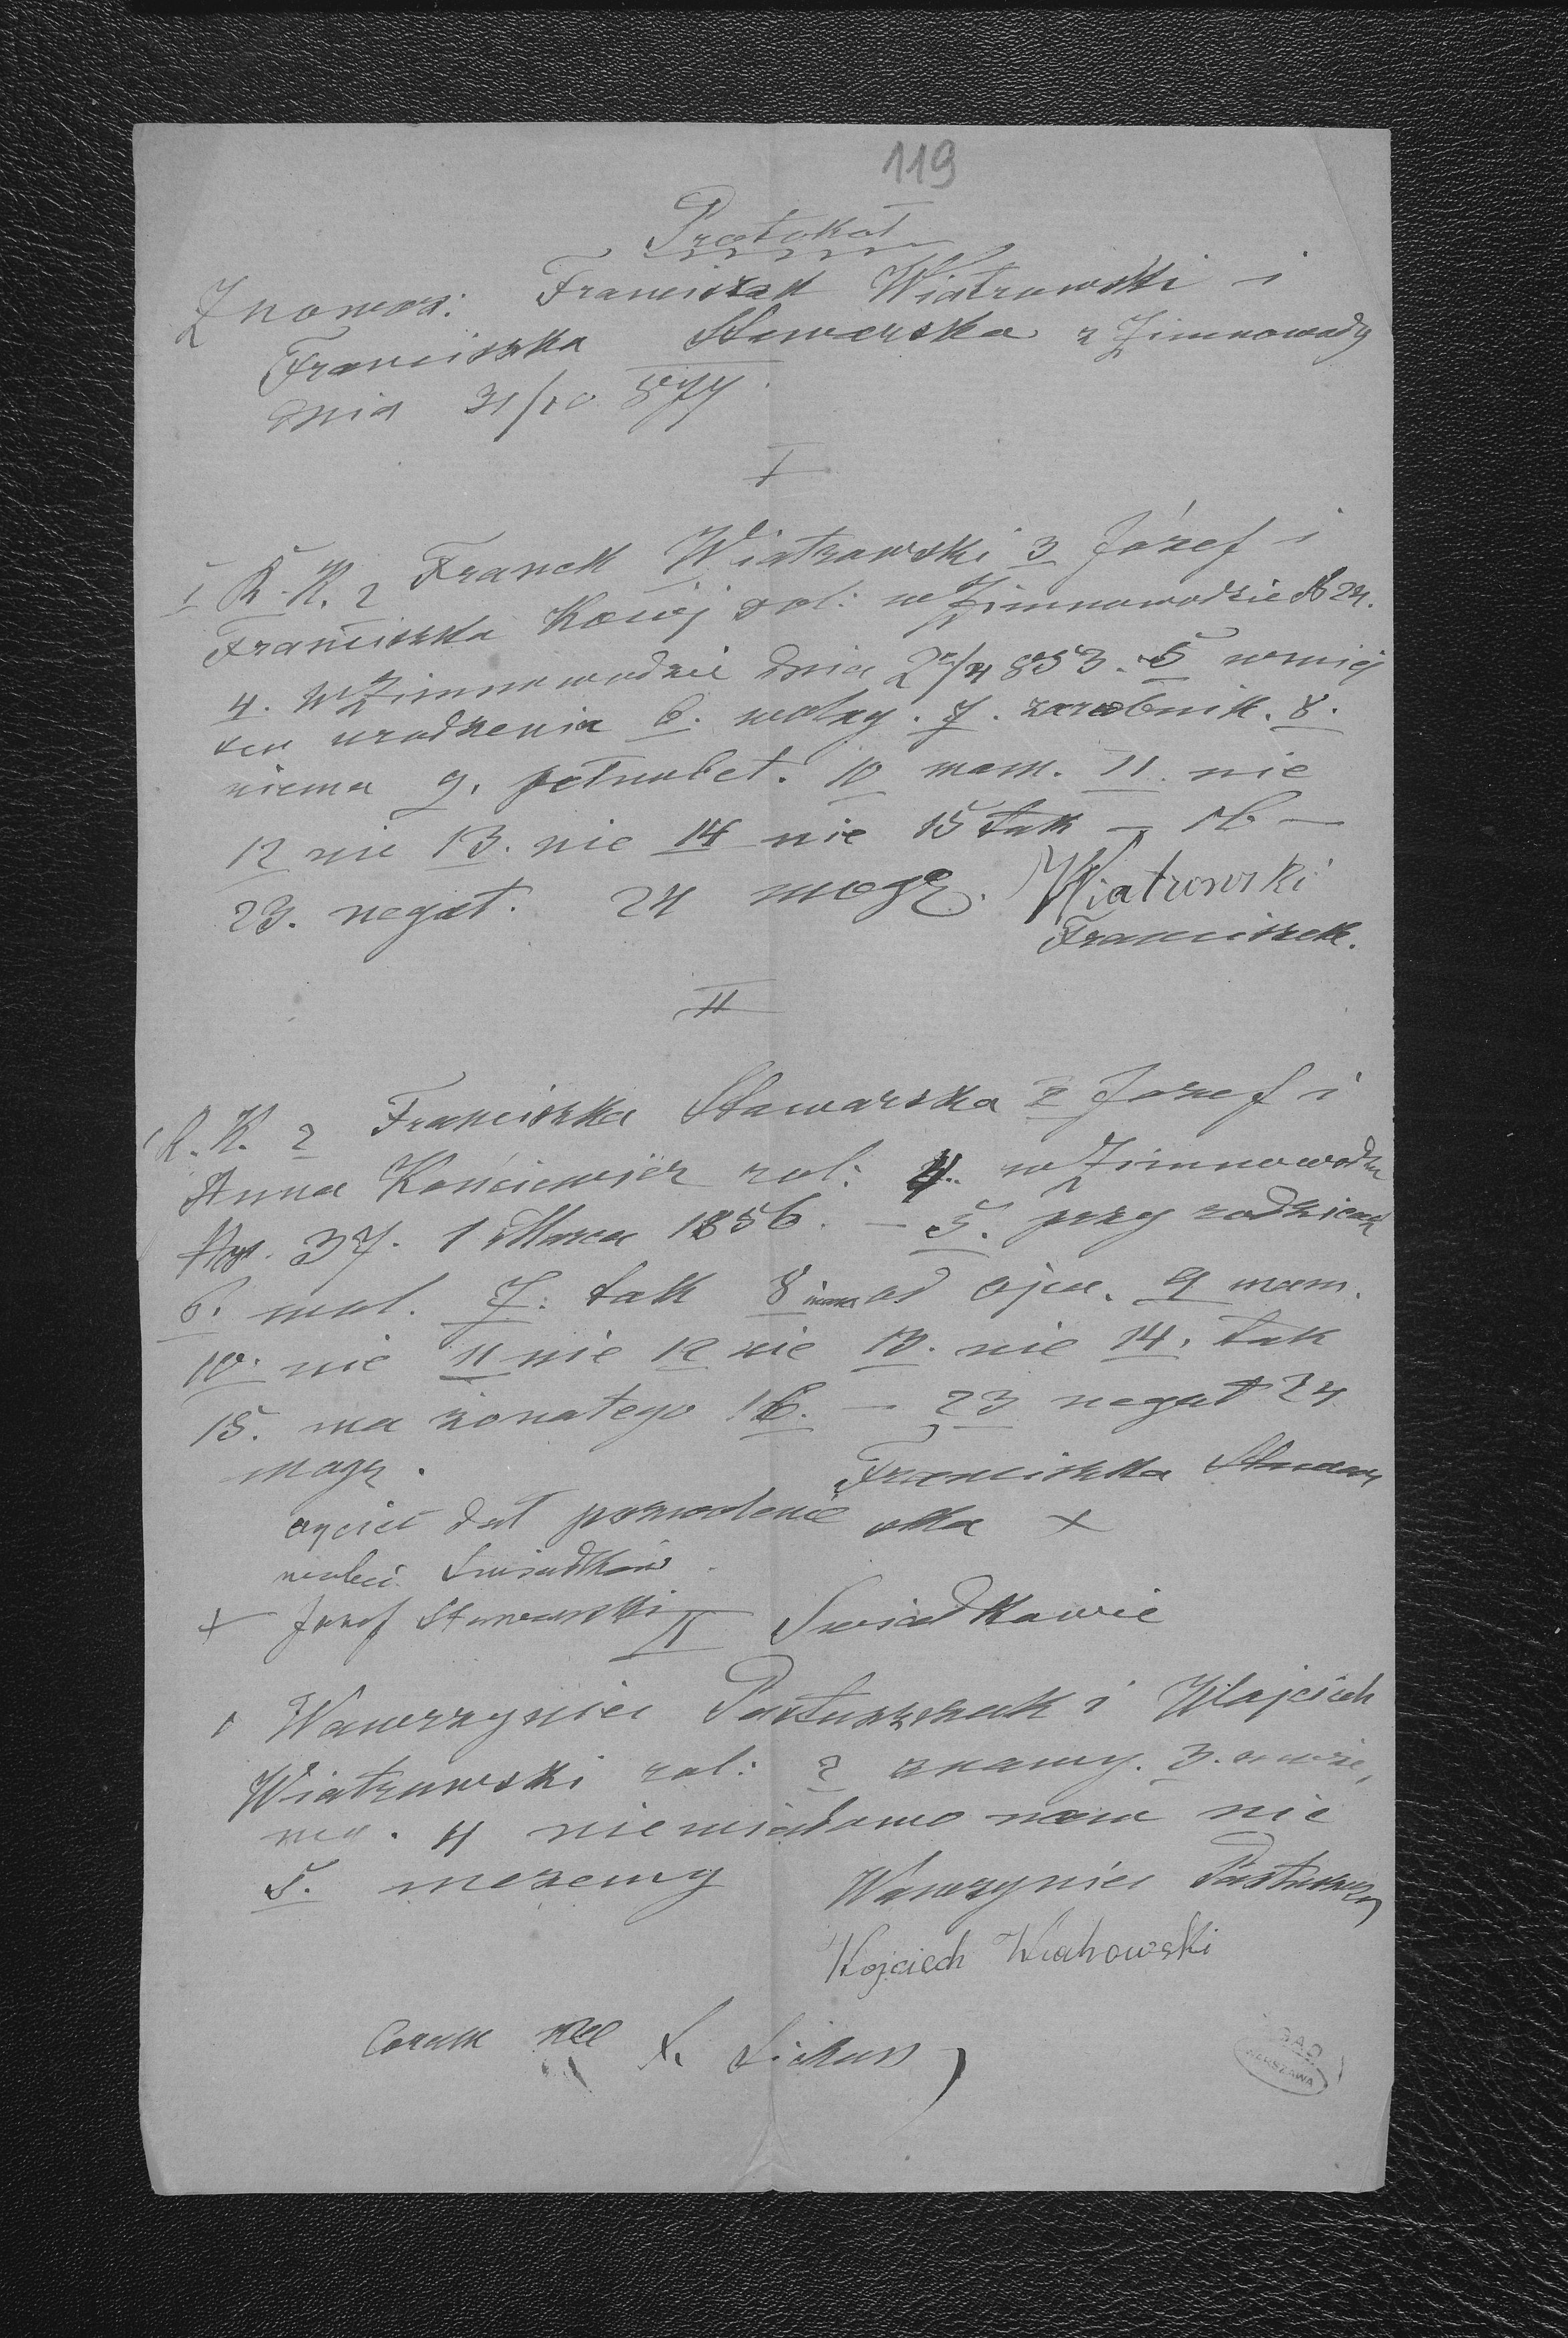 119
Protokół
Znowoż: Franciszek Wiatrowski i
Franciszka Stawarska z Zimnowody
dnia 31/10 877.
I
1 R. K. 2 Franck Wiatrowski 3 Józef i
Franciszka rol: w Zimnowodzie № 24.
4. w Zimnowodzie dnia 853. 5 wmiej
scu urodzenia 6. wolny. 7. zarobnik. 8.
niema 9. 10 mam. 11. nie
12 nie 13. nie 14 nie 15 tak — 16 —
23. negat. 24 mogę. Wiatrowski
Franciszek.
II
1 R. K. 2 Franciszka Stawarska 3 Józef i
Anna rol: 4. w Zimnowodzie
37. 1 Marca 1856. — 5. przy rodzicach
6. wol. 7. tak 8 mam od ojca. 9 mam.
10. nie 11 nie 12 nie 13. nie 14. tak
15. ma żonatego 16. — 23 negat 24
mogę.
Franciszka Stawar
ojciec dał pozwolenie ska +
wobec Świadków
+ Józef Stawarski
II Swiadkowie
1 Wawrzyniec Pastuszczak i Wojciech
Wiatrowski rol: 2 znamy. 3.
4 niewiadomo nam nic
5. mozemy Wawrzyniec
Wojciech Wiatrowski
Coram me X.
AGAD
WARSZAWA